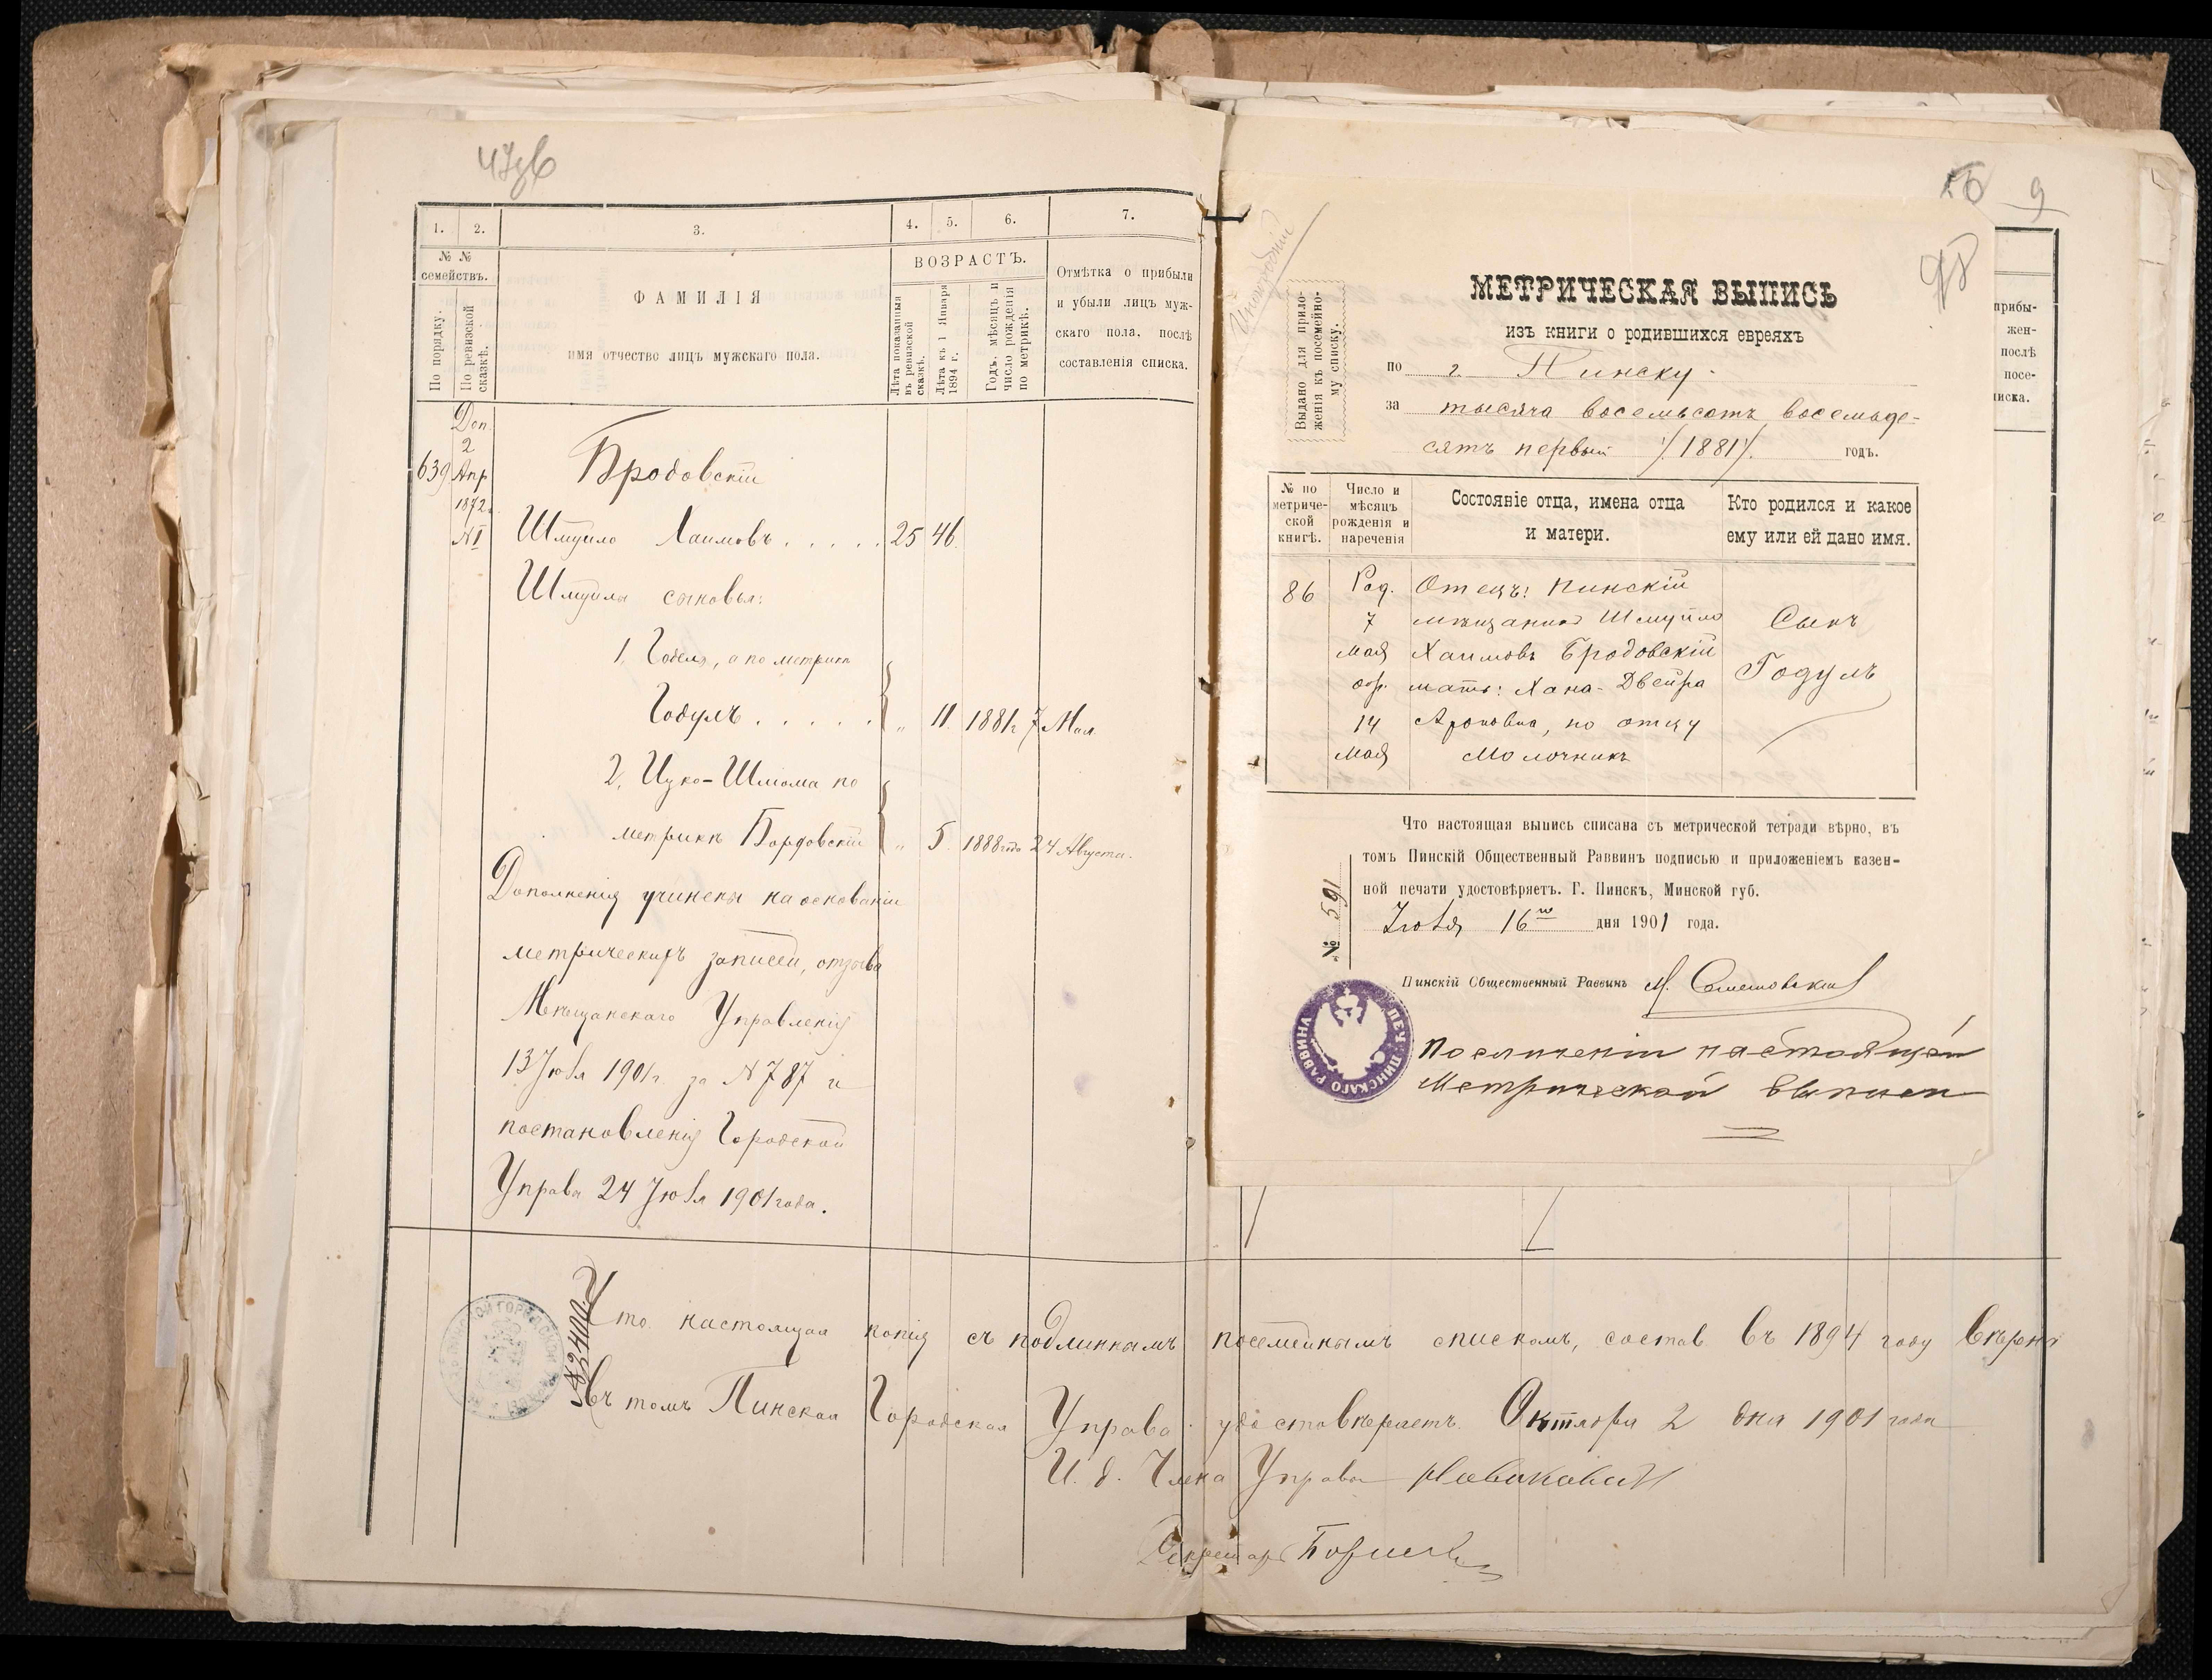 1.
2.
3.
4.
5.
6.
7.
№ №
семействъ.
По порядку.
По ревизской
сказкѣ.
ФАМИЛІЯ
имя отчество лицъ мужскаго пола.
ВОЗРАСТЪ.
Лѣта показанныя
въ ревизской
сказкѣ.
Лѣта къ 1 Января
1894 г.
Годъ, мѣсяцъ и
число рожденія
по метрикѣ.
Отмѣтка о прибыли
и убыли лицъ муж-
скаго пола, послѣ
составленія списка.
Доп.
2
639 Апр
1872 г.
№ 1
Бродовскій
Шмуйло Хаимовъ . . . . . 25 46.
Шмуйлы сыновья:
1, Годель, а по метрикѣ
Годулъ . . . . . „ 11. 1881 г 7 Мая
2, Ицко-Шліома по
метрикѣ Бордовскій „ 5. 1888 года 24 Августа.
Дополненія учинены на основаніи
метрическихъ записей, отзыва
Мѣщанскаго Управленія
13 Іюля 1901 г. за № 787 и
постановленія Городской
Управы 24 Іюля 1901 года.
Что настоящая копія съ подлиннымъ посемейнымъ спискомъ, состав. въ 1894 году вѣрна
въ томъ Пинская Городская Управа удостовѣряетъ. Октября 2 дня 1901 года
И. д. Члена Управы
Секретарь
№ 2400.
9
прибы-
жен-
послѣ
посе-
писка.
Выдано для прило-
женія къ посемейно-
му списку.
МЕТРИЧЕСКАЯ ВЫПИСЬ
изъ книги о родившихся евреяхъ
по г. Пинску.
за тысяча восемьсотъ восемьде-
сятъ первый /1881/. годъ.
№ по
метриче-
ской
книгѣ.
Число и
мѣсяцъ
рожденія и
нареченія
Состояніе отца, имена отца
и матери.
Кто родился и какое
ему или ей дано имя.
86
Род.
7
мая
обр.
14
мая
Отецъ: Пинскій
мѣщанинъ Шмуйло
Хаимовъ Бродовскій
мать: Хана-Двейра
Ароновна, по отцу
Молочникъ
Сынъ
Годулъ
Что настоящая выпись списана съ метрической тетради вѣрно, въ
томъ Пинскій Общественный Раввинъ подписью и приложеніемъ казен-
ной печати удостовѣряетъ. Г. Пинскъ, Минской губ.
Іюля 16го дня 1901 года.
№ 591
Пинскій Общественный Раввинъ
ПЕЧ. ПИНСКАГО РАВВИНА
По сличеніи настоящей
Метрической выписи